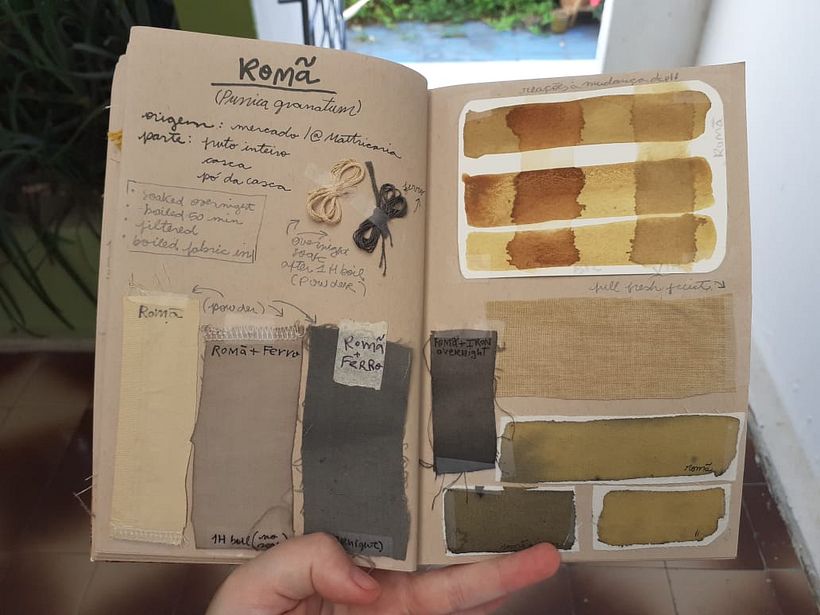 Romã
(Punica granatum)
origem: mercado / @Mattricaria
parte: fruto inteiro
casca
pó da casca
• soaked overnight
• boiled 50 min
• filtered
• boiled fabric in
ferro
overnight
soak
after 1H boil
(POWDER)
(powder)
Romã
Romã + Ferro
1H boil (no
Romã
+
FERRO
reações à mudança de pH
Romã
full fresh fruit
Romã + IRON
overnight
romã